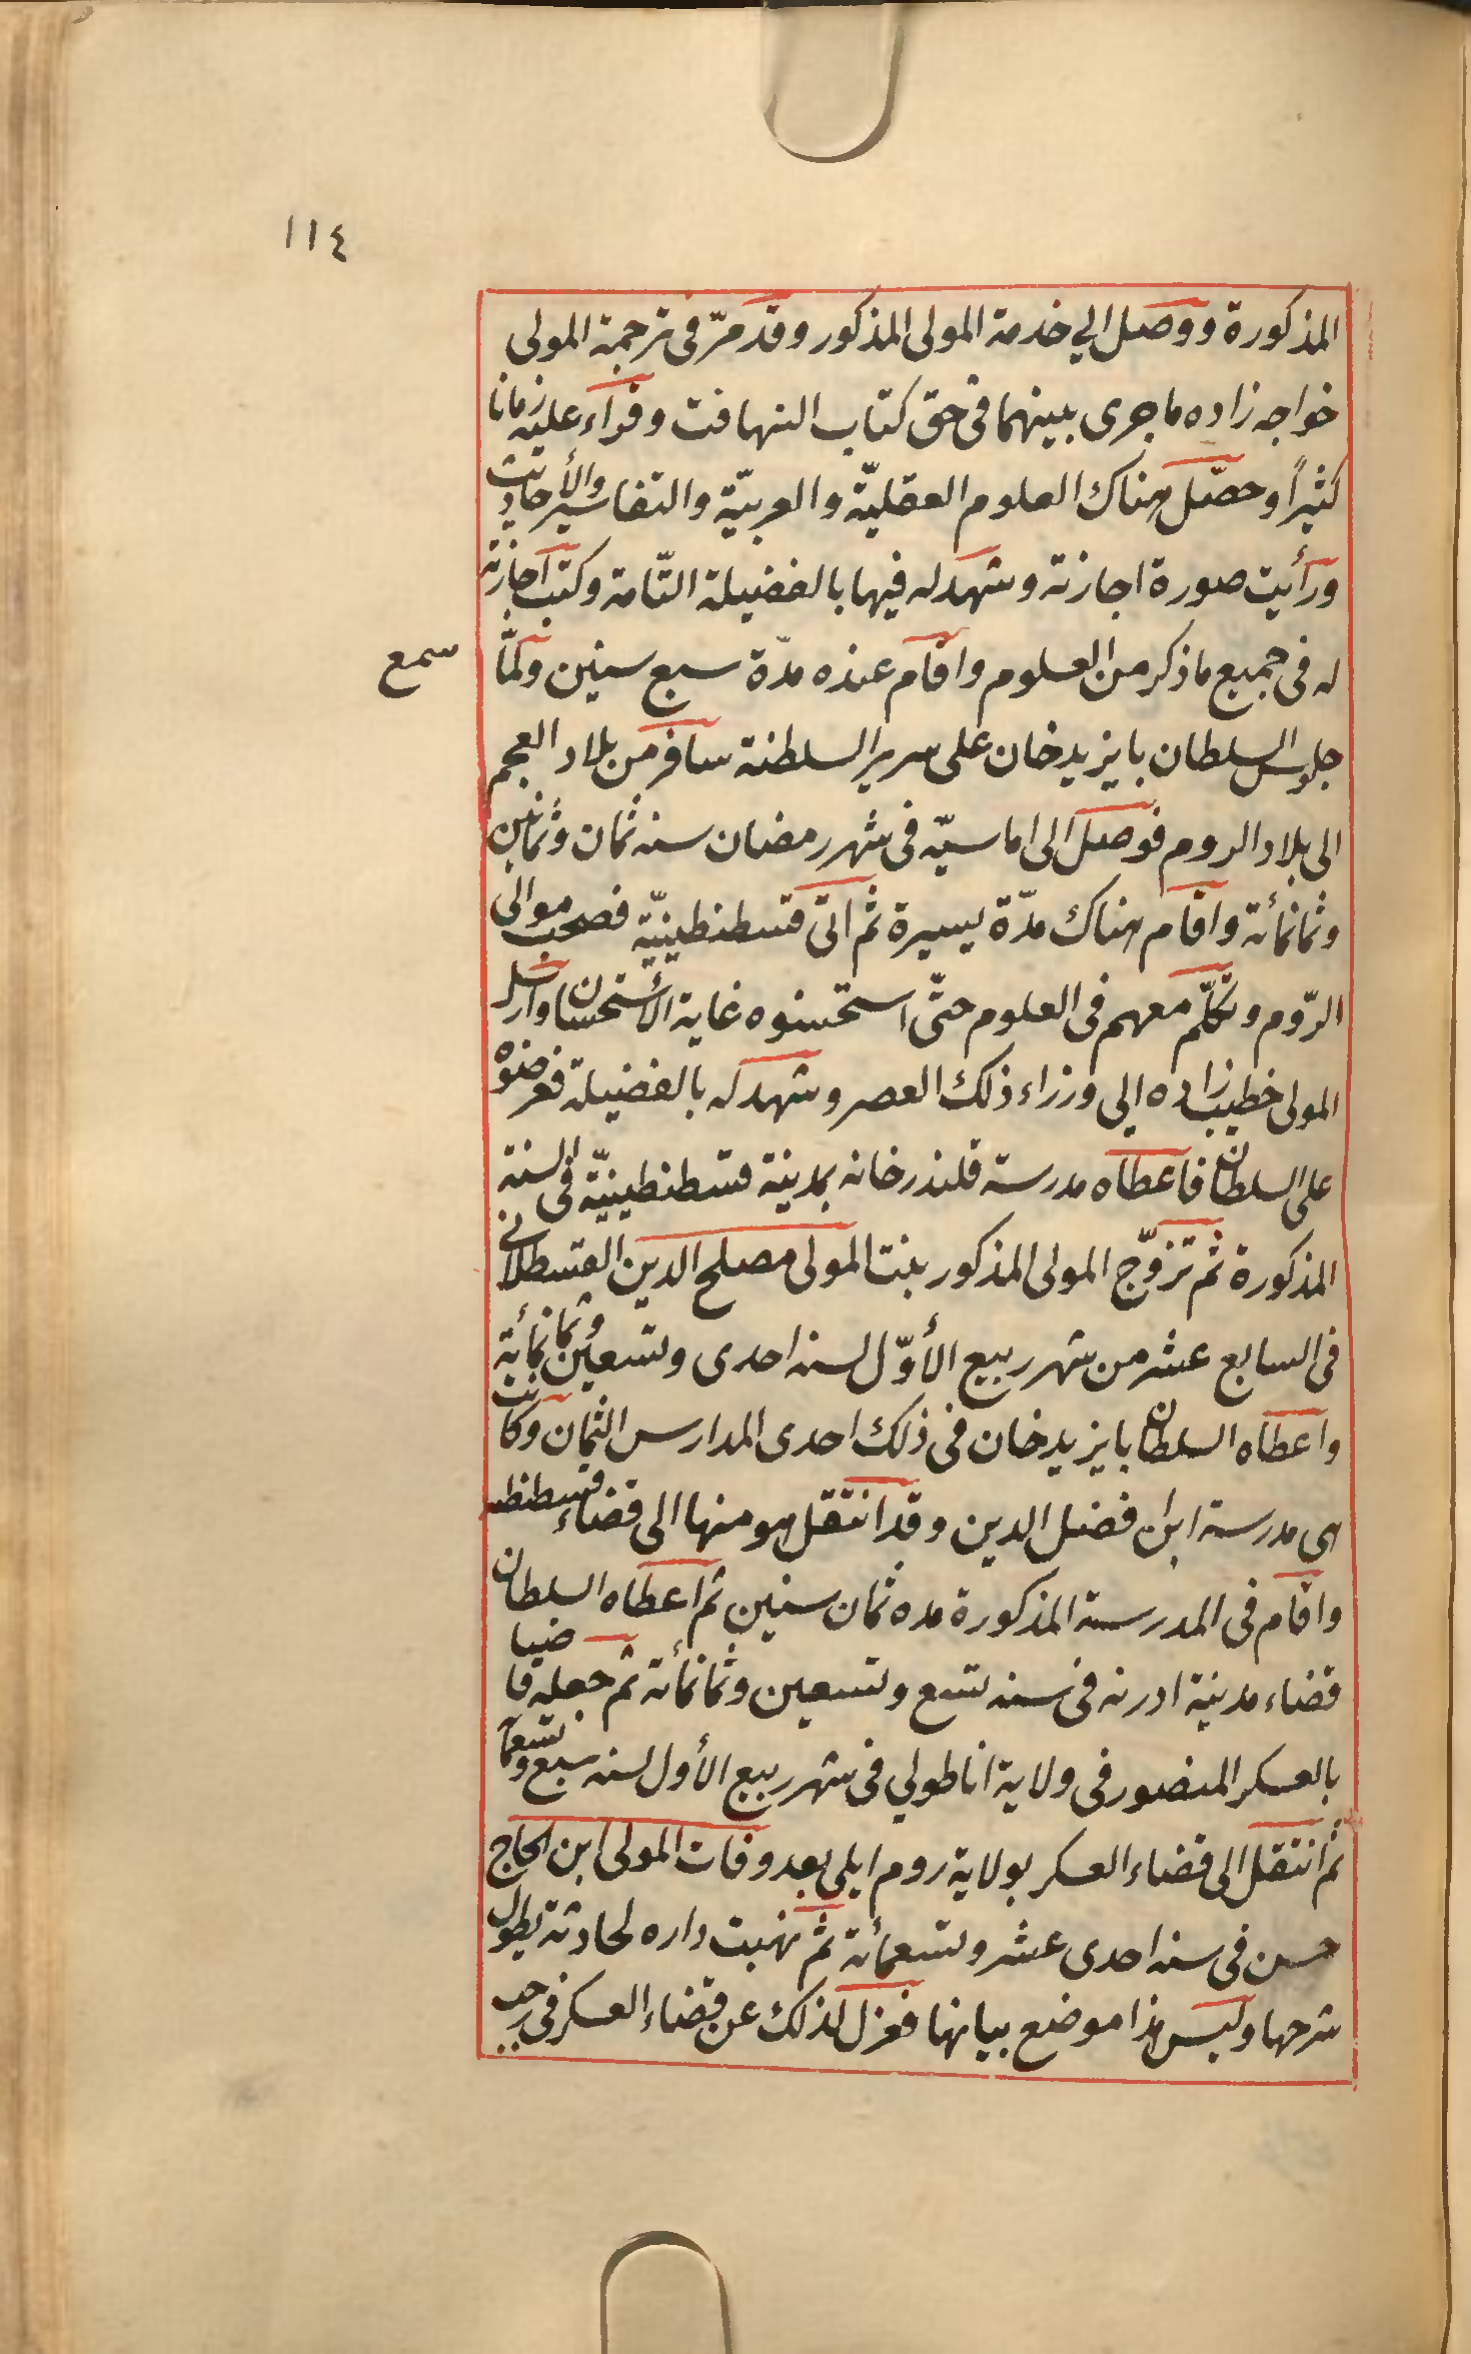 ١١٤
المذكورة ووصل الي خدمة المولى المذكور وقد مرّ فى ترجمة المولى
خواجه زاده ما جرى بينهما فى حق كتاب التهافت وقراء عليه زمانا
كثيراً وحصّل هناك العلوم العقليّة والعربيّة والتفاسير والأحاديث
ورأيت صورة اجازته وشهد له فيها بالفضيلة التّامة وكتب اجازته
له فى جميع ما ذكر من العلوم واقام عنده مدّة سبع سنين ولمّا
سمع
جلوس السلطان بايزيد خان على سرير السلطنة سافر من بلاد العجم
الى بلاد الروم فوصل الى اماسيّه فى شهر رمضان سنه ثمان وثمانين
وثمانمائة واقام هناك مدّة يسيرة ثم اتى قسطنطينيّة فصحب موالى
الرّوم وتكلّم معهم فى العلوم حتّى استحسنوه غاية الأستحسان وارسل
المولى خطيب زاده الي وزراء ذلك العصر وشهد له بالفضيلة فعرضوه
على السلطان فاعطاه مدرسة قلندرخانه بمدينة قسطنطينيّة فى السنة
المذكورة ثم تزوّج المولى المذكور بنت المولى مصلح الدين القسطلانى
فى السابع عشر من شهر ربيع الأوّل لسنه احدى وتسعين وثمانمائة
واعطاه السلطان بايزيد خان فى ذلك احدى المدارس الثمان وكانت
هى مدرسة ابن افضل الدين وقد انتقل هو منها الى قضاء قسطنطـ
واقام فى المدرسة المذكورة مده ثمان سنين ثم اعطاه السلطان
قضاء مدينة ادرنه فى سنه تسع وتسعين وثمانمائة ثم جعله قاضيا
بالعسكر المنصور فى ولاية اناطولي فى شهر ربيع الأول لسنه سبع وتسعما
ثم انتقل الى قضاء العسكر بولاية روم ايلى بعد وفات المولى ابن الحاج
حسن فى سنه احدى عشر وتسعمائة ثم نهبت داره لحادثة يطول
شرحها وليس هذا موضع بيانها فعزل لذلك عن قضاء العسكر فى رجب